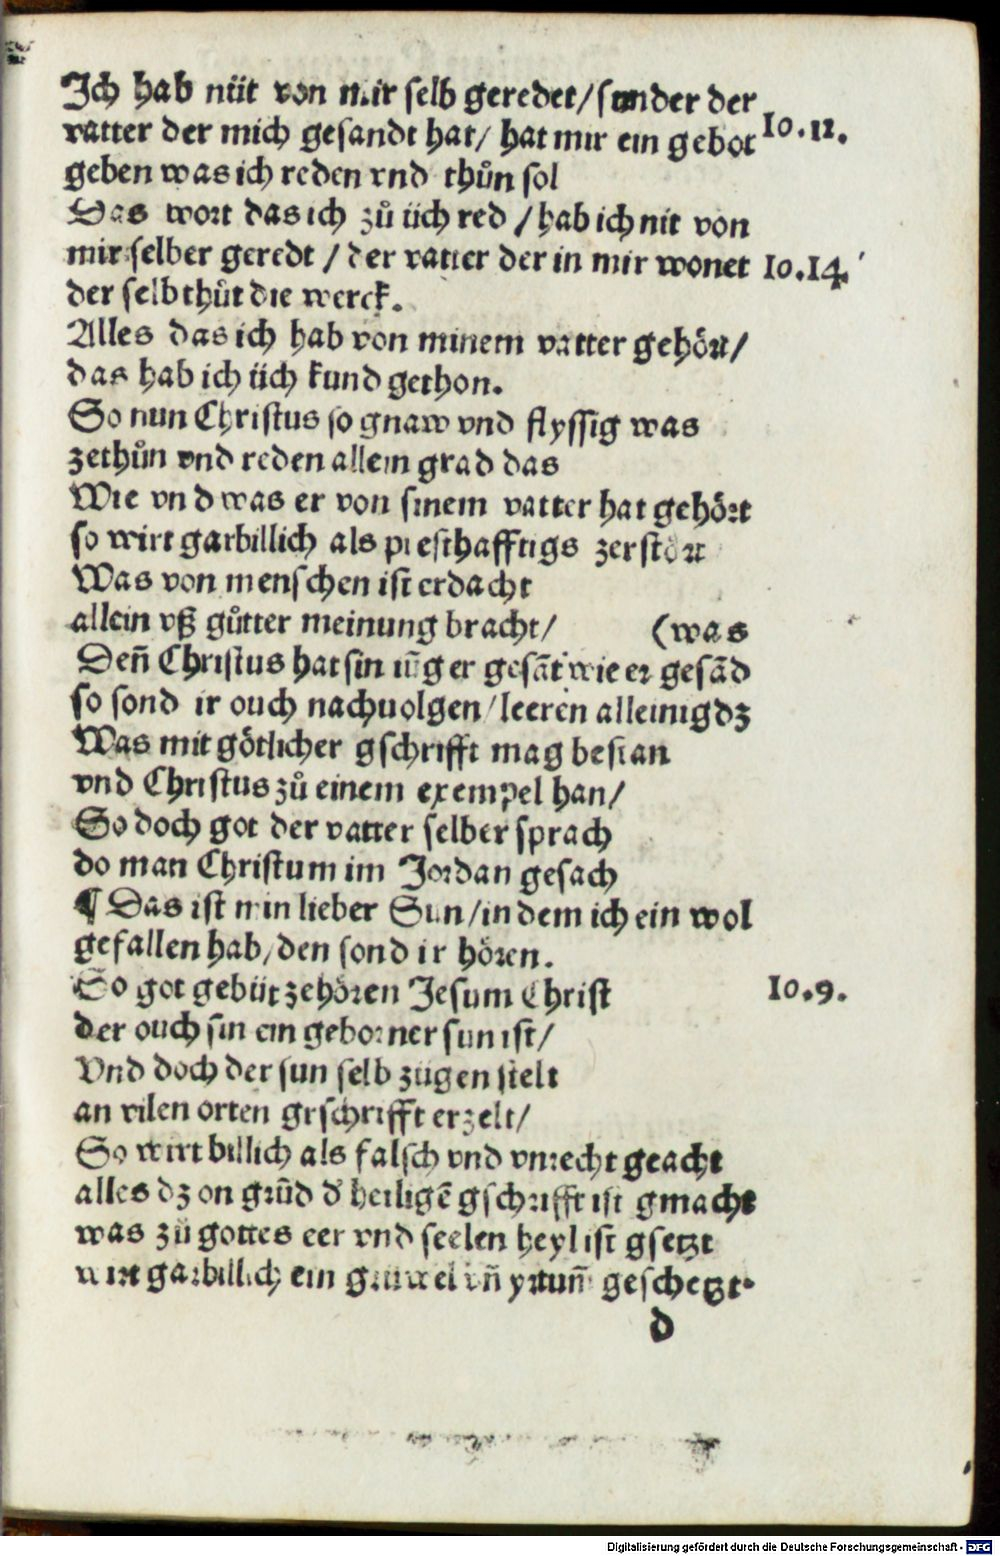 Ich hab nüt von mir selb geredet/sunder der
vatter der mich gesandt hat/ hat mir ein gebot Io.12.
geben was ich reden vnd thůn sol
Das wort das ich zů üch red /hab ich nit von
mir selber geredt / der vatter der in mir wonet Io.14.
der selb thůt die werck.
Alles das ich hab von minem vatter gehört/
das hab ich üch kund gethon.
So nun Christus so gnaw vnd flyssig was
zethůn vnd reden allein grad das
Wie vnd was er von sinem vatter hat gehört
so wirt garbillich als presthafftigs zerstört
Was von menschen ist erdacht
allein vß gůtter meinung bracht/ (was
Deñ Christus hat sin iūger gesāt wie er gesād
so sond ir ouch nachuolgen/leeren alleinig dz
Was mit götlicher gschrifft mag bestan
vnd Christus zů einem exempel han/
So doch got der vatter selber sprach
do man Christum im Jordan gesach
¶ Das ist min lieber Sun/in dem ich ein wol
gefallen hab/den sond ir hören.
So got gebüt zehören Jesum Christ Io.9.
der ouch sin ein geborner sun ist/
Vnd doch der sun selb zügen stelt
an vilen orten grschrifft erzelt/
So wirt billich als falsch vnd vnrecht geacht
alles dz on grūd d' heiligē gschrifft ist gmacht
was zů gottes eer vnd seelen heyl ist gsetzt
wirt garbillich ein grüwel vñ yrtum geschetzt.
d
Digitalisierung gefördert durch die Deutsche Forschungsgemeinschaft - DFG